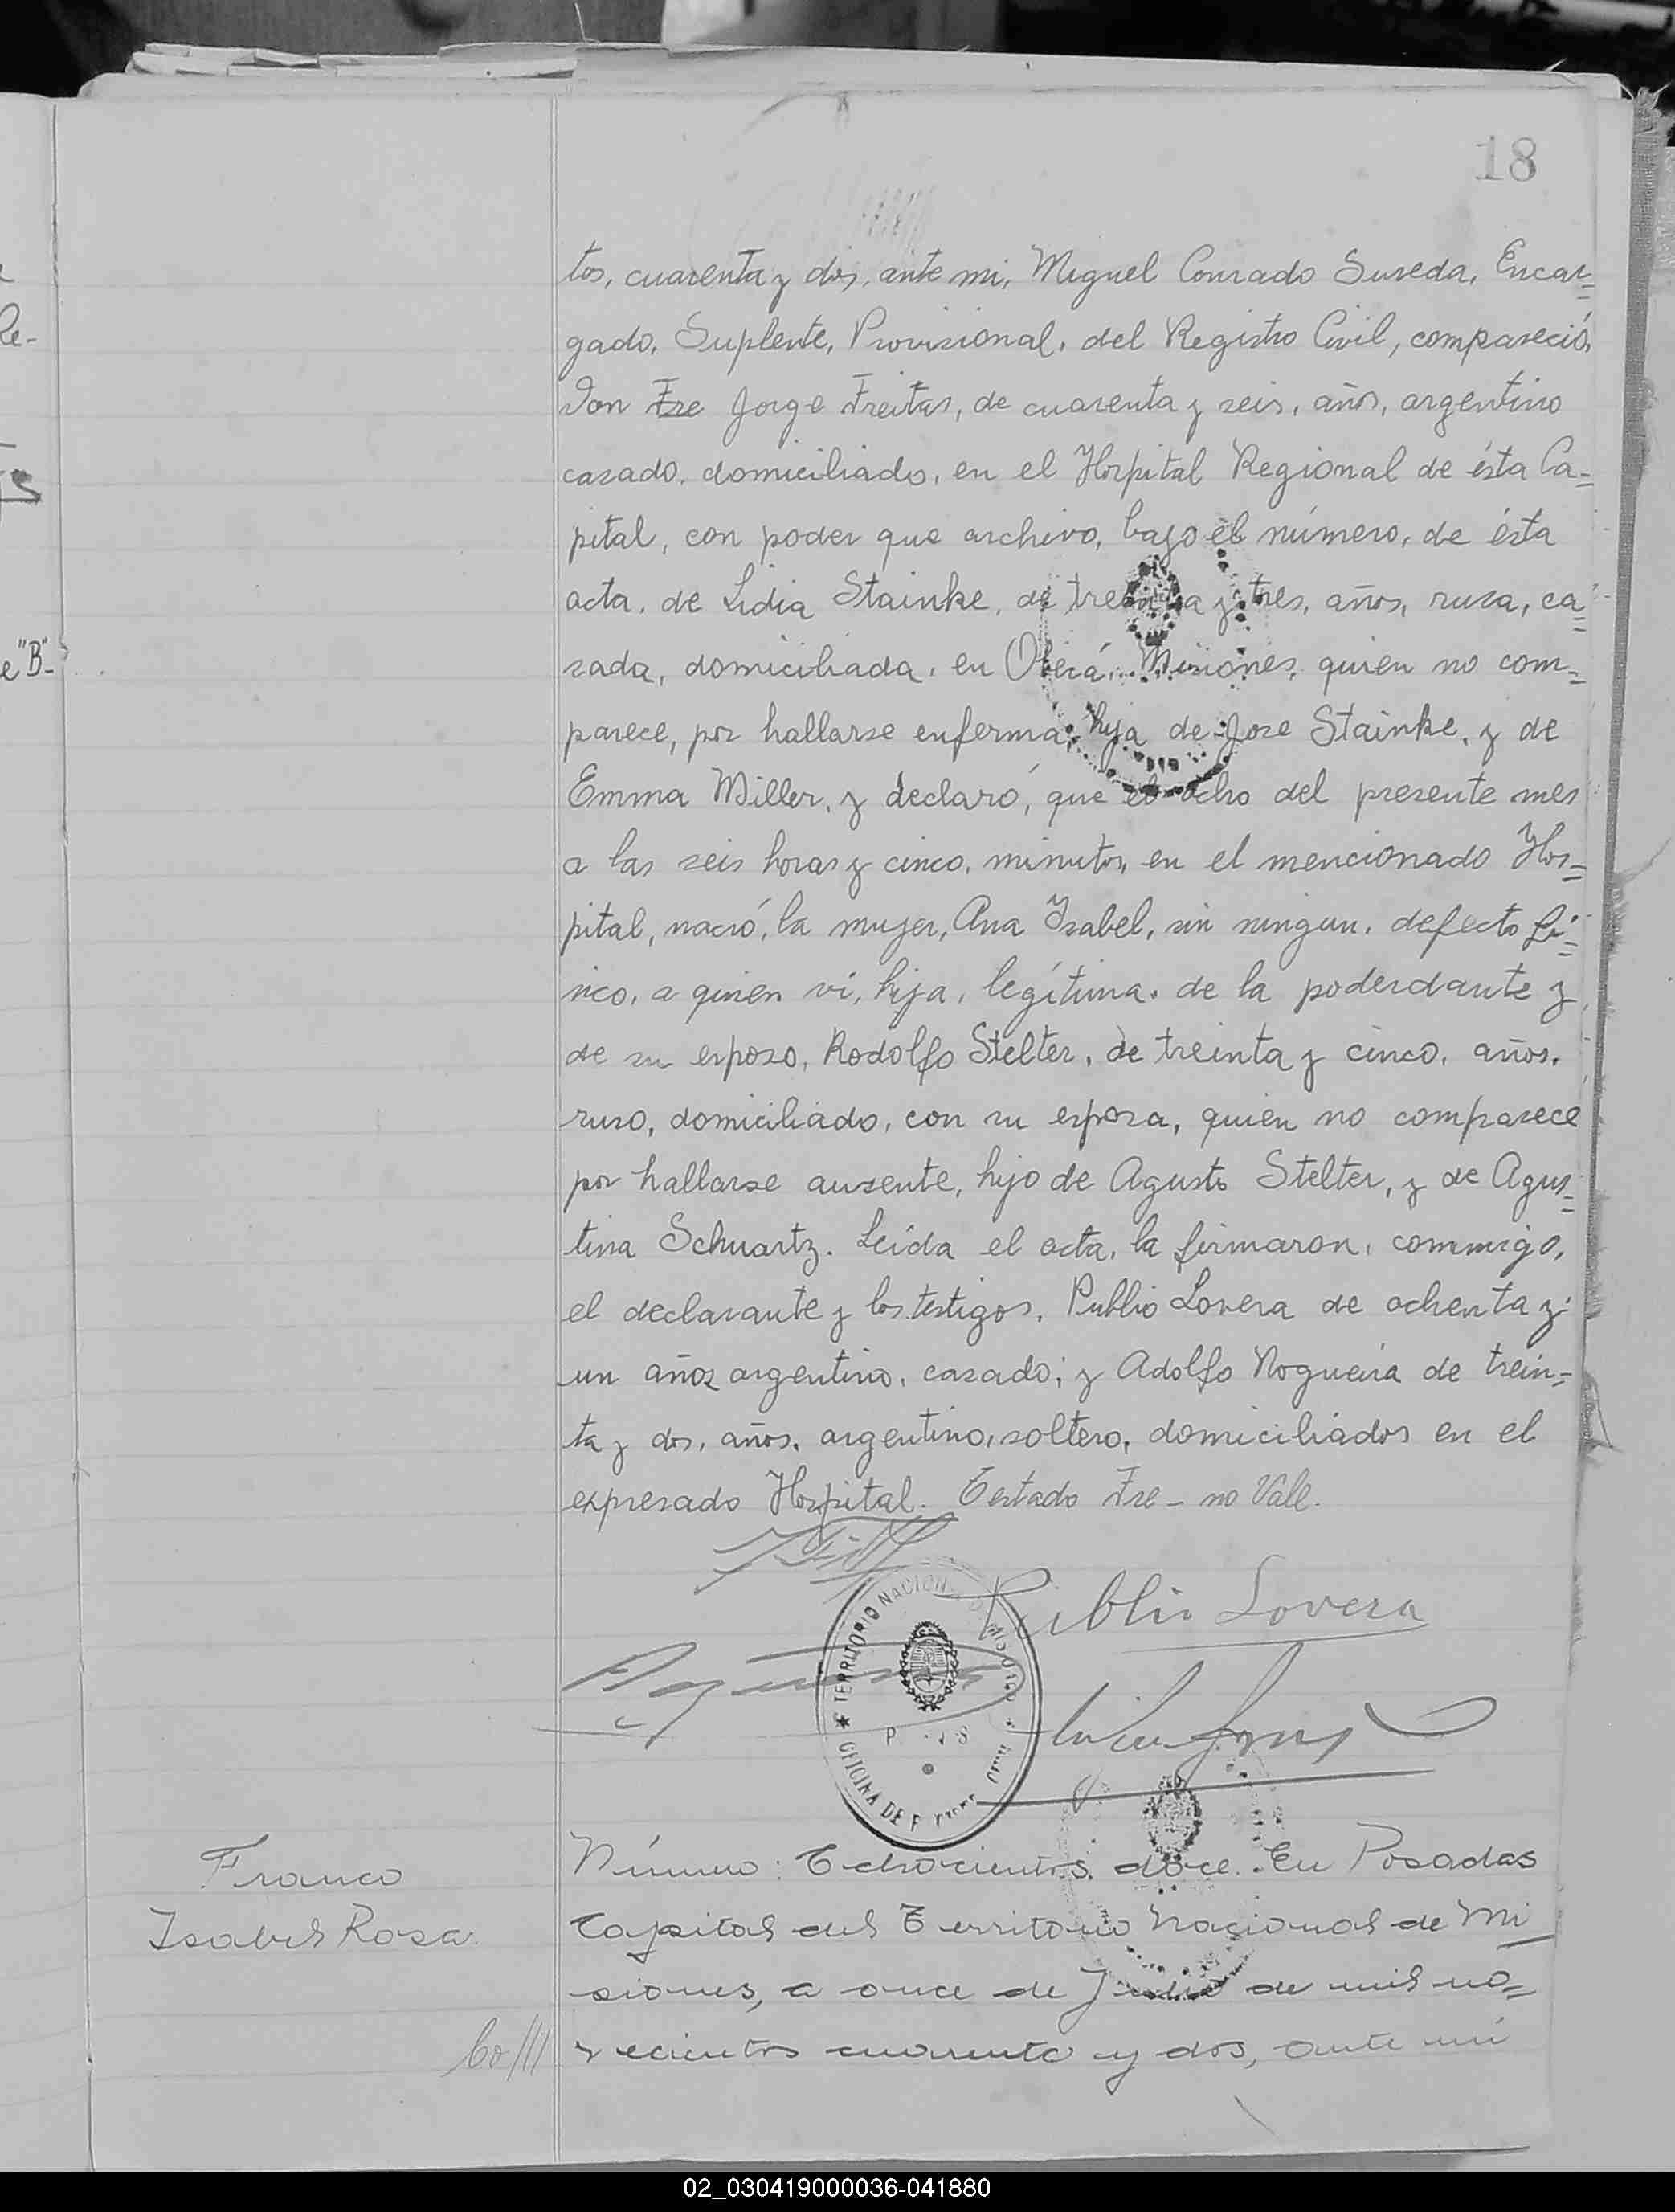 18
Re-
e "B"-
tos, cuarenta y dos, ante mi, Miguel Conrado Sureda, Encar=
gado, Suplente, Provisional, del Registro Civil, compareció,
Don Fre Jorge Freitas, de cuarenta y seis, años, argentino
casado, domiciliado, en el Hospital Regional de ésta Ca=
pital, con poder que archivo, bajo el número, de ésta
acta, de Lidia Stainke, de treinta y tres, años, rusa, ca=
sada, domiciliada, en Oberá, Misiones, quien no com=
parece, por hallarse enferma, hija de Jose Stainke, y de
Emma Miller, y declaró, que el ocho del presente mes
a las seis horas y cinco, minutos, en el mencionado Hos=
pital, nació, la mujer, Ana Ysabel, sin ningun, defecto fí=
sico, a quien vi, hija, legítima, de la poderdante y
de su esposo, Rodolfo Stelter, de treinta y cinco, años,
ruso, domiciliado, con su esposa, quien no comparece
por hallarse ausente, hijo de Agusto Stelter, y de Agus=
tina Schuartz. Leida el acta, la firmaron, conmigo,
el declarante y los testigos, Publio Lovera de ochenta y
un años argentino, casado; y Adolfo Nogueira de trein=
ta y dos, años, argentino, soltero, domiciliados en el
expresado Hospital. Testado Fre - no Vale.
Publio Lovera
TERRITORIO NACIONAL DE MISIONES
OFICINA DE
Franco
Isabel Rosa.
Número: Ochocientos doce. En Posadas
Capital del Territorio Nacional de Mi
siones, a once de Julio de mil no=
vecientos cuarenta y dos, ante mí
02_030419000036-041880